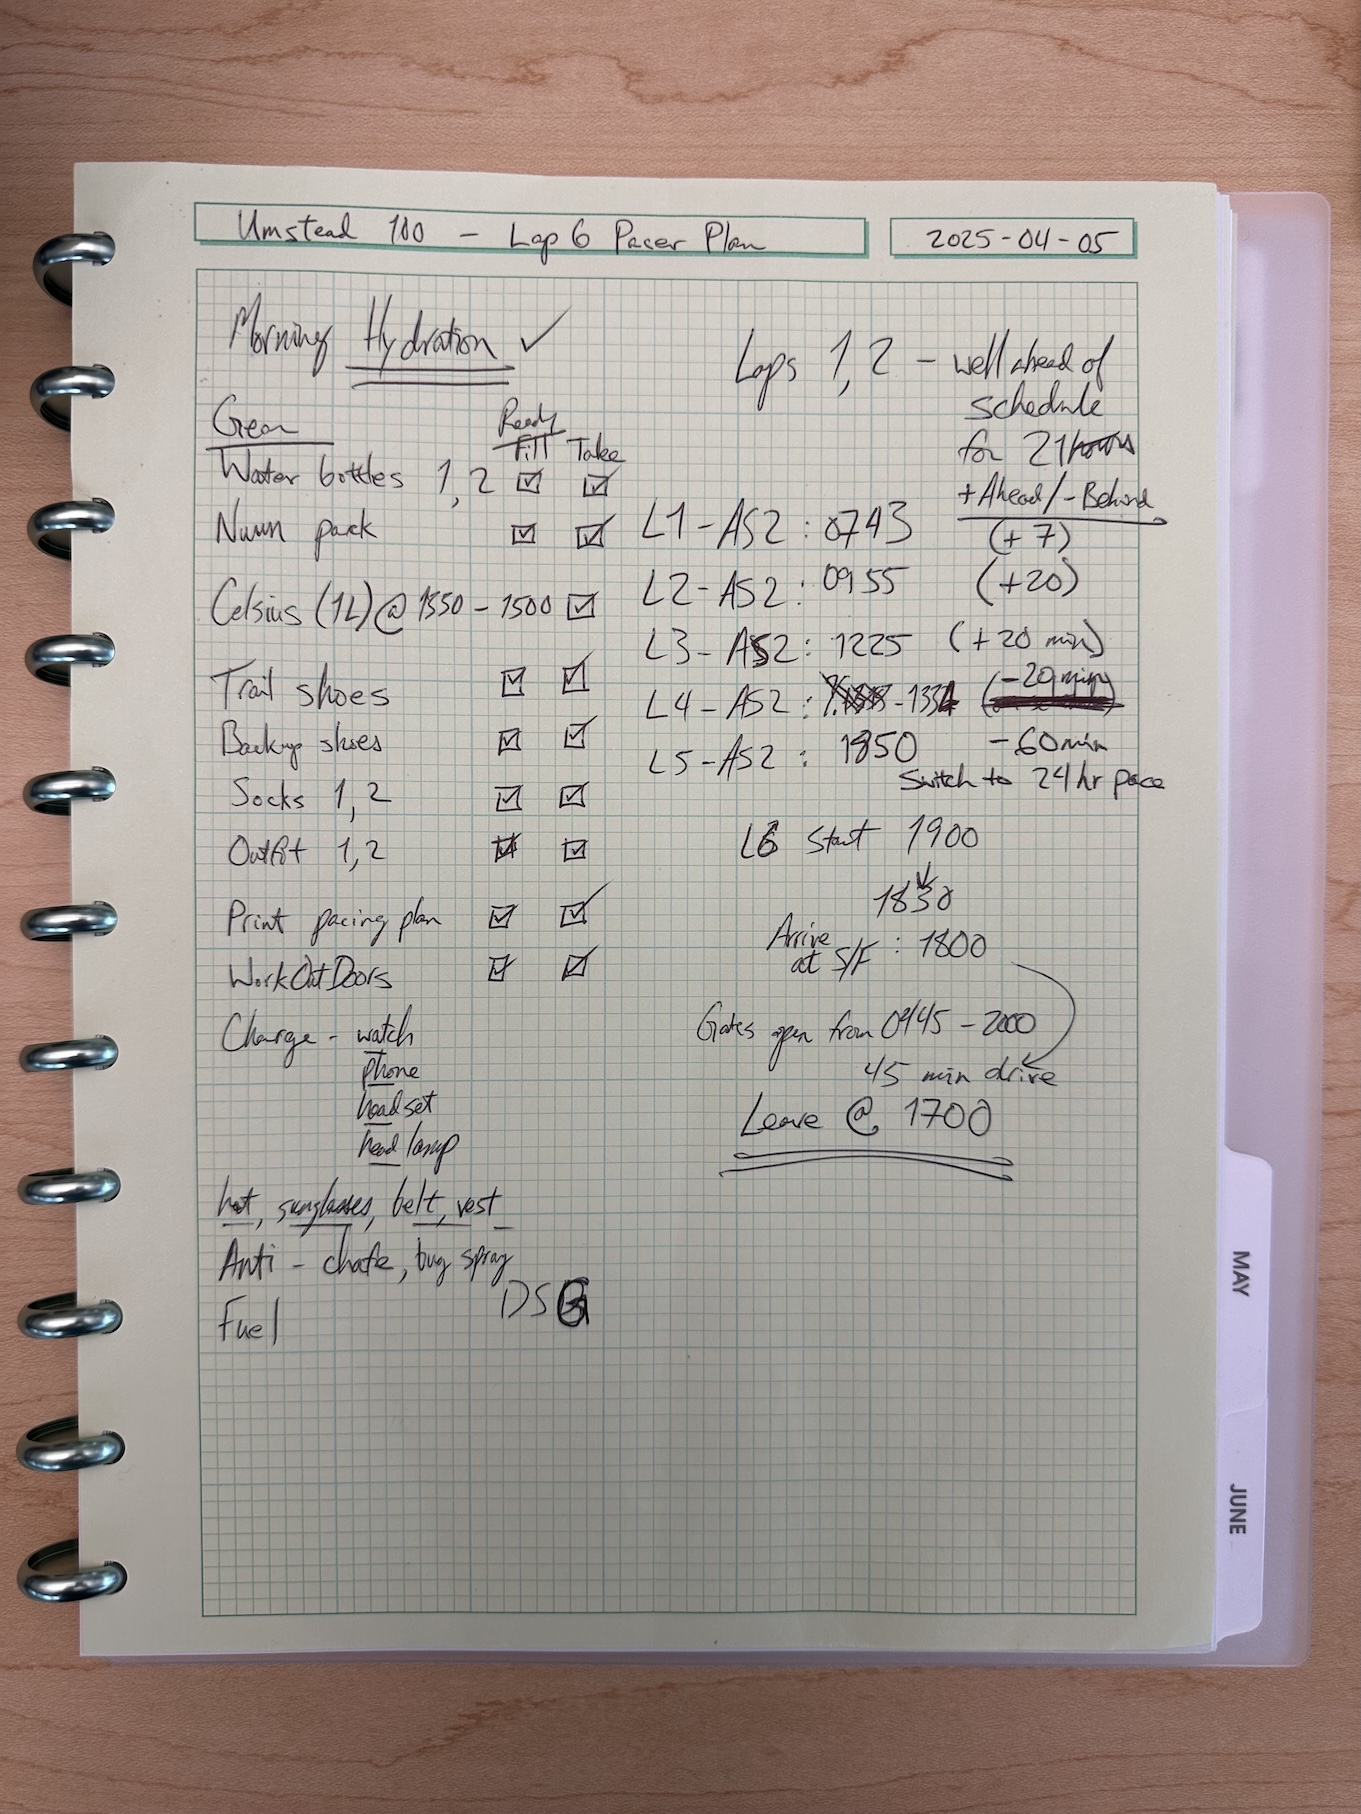 Umstead 100 - Lap 6 Pacer Plan
2025-04-05
Morning Hydration ✓
Gear
Ready
Fill Take
Water bottles 1,2 ☑ ☑
Nuun pack ☑ ☑
Celsius (1L) @ 1330 - 1500 ☑
Trail shoes ☑ ☑
Backup shoes ☑ ☑
Socks 1,2 ☑ ☑
Outfit 1,2 ☑ ☑
Print pacing plan ☑ ☑
WorkOutDoors ☑ ☑
Charge - watch
phone
headset
head lamp
hat, sunglasses, belt, vest
Anti-chafe, bug spray
Fuel
DSG
Laps 1,2 - well ahead of
schedule
for 21 hours
+Ahead/-Behind
L1-AS2: 0743 (+7)
L2-AS2: 0955 (+20)
L3-AS2: 1225 (+20 min)
L4-AS2: -1334 (-20 min)
L5-AS2: 1850 -60 min
Switch to 24 hr pace
L6 Start 1900
1830
Arrive
at S/F: 1800
Gates open from 0945 - 2000
45 min drive
Leave @ 1700
MAY
JUNE